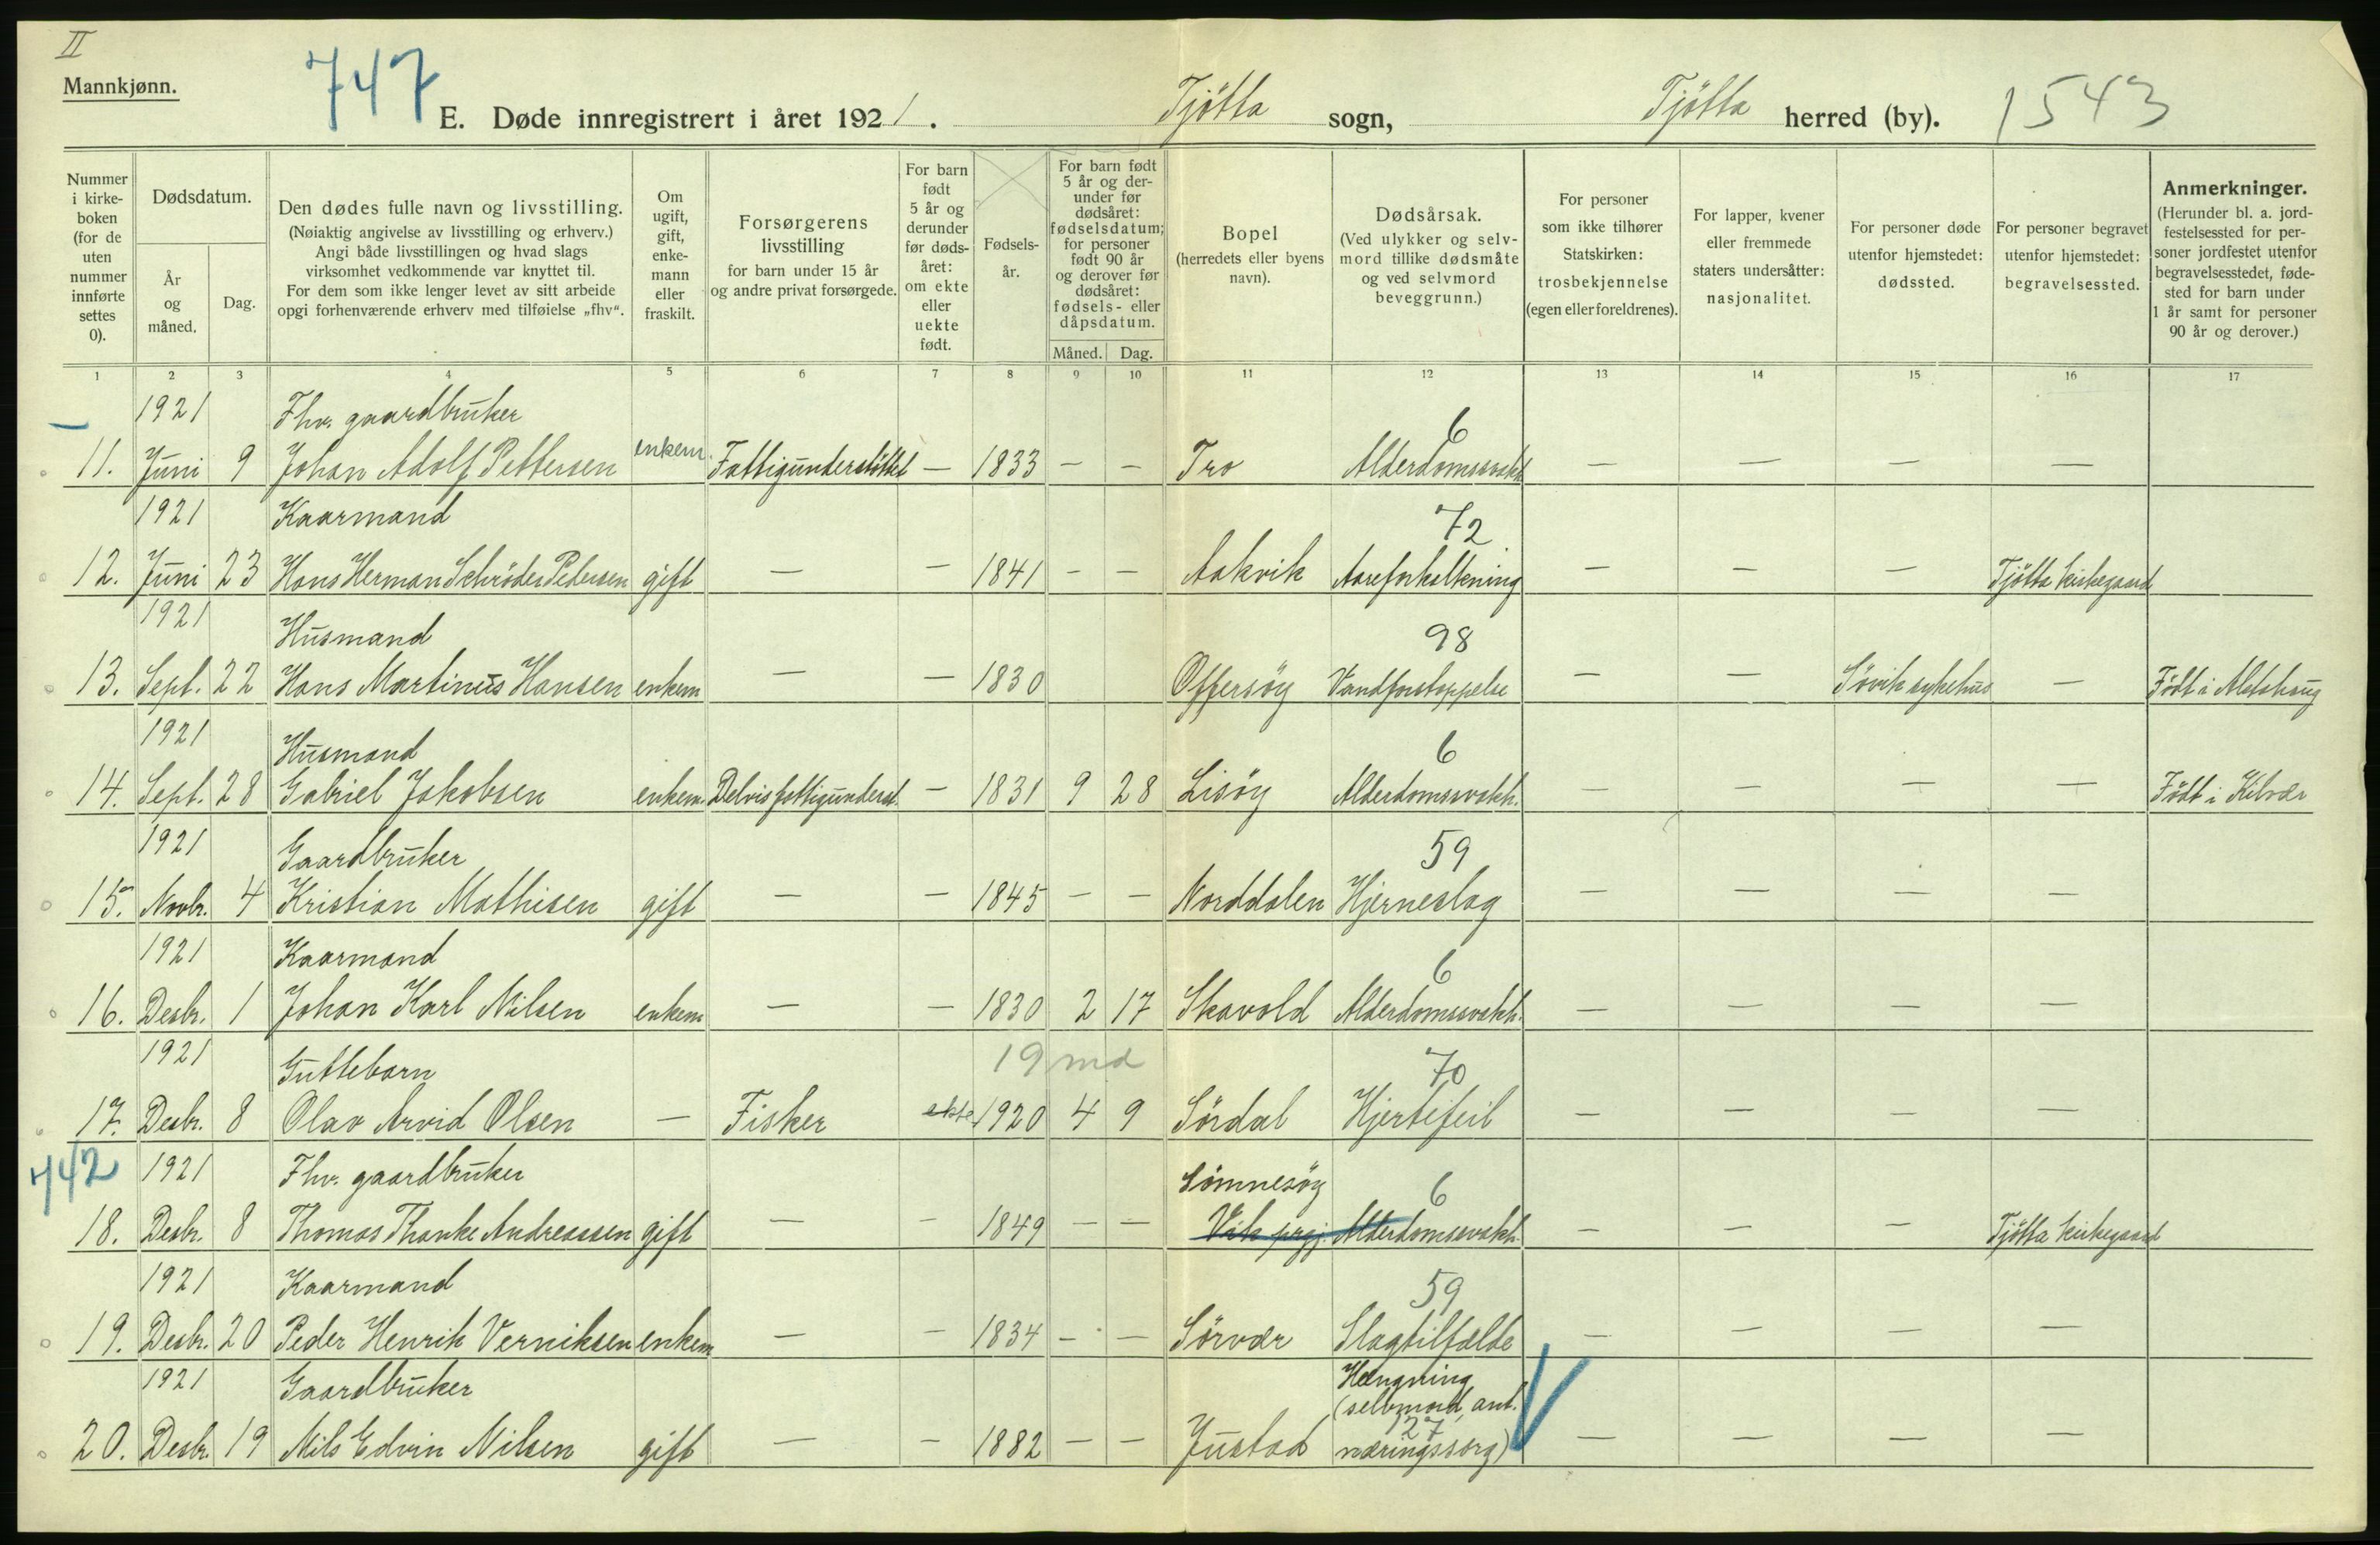 II
Mannkjønn.
747
E. Døde innregistrert i året 1921. Tjøtta sogn, Tjøtta herred (by). 1543
Nummer i kirke- boken (for de uten nummer innførte settes 0).
Dødsdatum.
År og måned.
Dag.
Den dødes fulle navn og livsstilling.
(Nøiaktig angivelse av livsstilling og erhverv.)
Angi både livsstillingen og hvad slags
virksomhet vedkommende var knyttet til.
For dem som ikke lenger levet av sitt arbeide
opgi forhenværende erhverv med tilføielse „fhv“.
Om ugift, gift, enke- mann eller fraskilt.
Forsørgerens
livsstilling
for barn under 15 år
og andre privat forsørgede.
For barn født 5 år og derunder før døds- året: om ekte eller uekte født.
Fødsels- år.
For barn født 5 år og der- under før dødsåret: fødselsdatum; for personer født 90 år og derover før dødsåret: fødsels- eller dåpsdatum.
Måned. Dag.
Bopel
(herredets eller byens
navn).
Dødsårsak.
(Ved ulykker og selv-
mord tillike dødsmåte
og ved selvmord
beveggrunn.)
For personer
som ikke tilhører
Statskirken:
trosbekjennelse
(egen eller foreldrenes).
For lapper, kvener
eller fremmede
staters undersåtter:
nasjonalitet.
For personer døde
utenfor hjemstedet:
dødssted.
For personer begravet
utenfor hjemstedet:
begravelsessted.
Anmerkninger.
(Herunder bl. a. jord-
festelsessted for per-
soner jordfestet utenfor
begravelsesstedet, føde-
sted for barn under
1 år samt for personer
90 år og derover.)
1 2 3 4 5 6 7 8 9 10 11 12 13 14 15 16 17
1921 Fhv. gaardbruker 6
11. Juni 9 Johan Adolf Pettersen enkem. Fattigunderstöttet — 1833 — — Tro Alderdomssvakh — — — —
1921 Kaarmand 72
12. Juni 23 Hans Herman Schröder Pedersen gift — — 1841 — — Aakvik Aareforkalkning — — — Tjötta kirkegaard
1921 Husmand 98
13. Sept. 22 Hans Martinus Hansen enkem — — 1830 Offersöy Vandforstoppelse — — Sövik sykehus — Födt i Alstahaug
1921 Husmand 6
14. Sept. 28 Gabriel Jakobsen enkem. Delvis fattigunderst. — 1831 9 28 Lisöy Alderdomssvakh. — — — — Födt i Kilvær
1921 Gaardbruker 59
15. Novbr. 4 Kristian Mathisen gift — — 1845 — — Norddalen Hjerneslag — — — —
1921 Kaarmand 6
16. Desbr. 1 Johan Karl Nilsen enkem — — 1830 2 17 Skavold Alderdomssvakh. — — — —
1921 Guttebarn 19 md 70
17. Desbr. 8 Olav Arvid Olsen — Fisker ekte 1920 4 9 Sördal Hjertefeil — — — —
742 1921 Fhv. gaardbruker Sömnesöy 6
18. Desbr. 8 Thomas Thanke Andreassen gift — — 1849 — — Vik prgj. Alderdomssvakh. — — — Tjötta kirkegaard
1921 Kaarmand 59
19. Desbr. 20 Peder Henrik Verniksen enkem — — 1834 — — Sörvær Slagtilfælde — — — —
1921 Gaardbruker Hængning
(selvmord, ant.
27
20. Desbr. 19 Nils Edvin Nilsen gift — — 1882 — — Justad næringssorg) — — — —